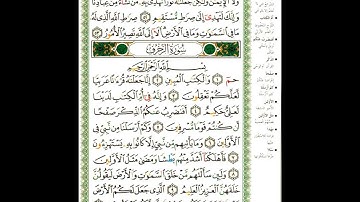 وَلَا ٱلْإِيمَـٰنُ وَلَـٰكِن جَعَلْنَـٰهُ نُورًا نَّهْدِى بِهِۦ مَن نَّشَآءُ مِنْ عِبَادِنَا
وَإِنَّكَ لَتَهْدِىٓ إِلَىٰ صِرَٰطٍ مُّسْتَقِيمٍ ٥٢ صِرَٰطِ ٱللَّهِ ٱلَّذِى لَهُۥ
مَا فِى ٱلسَّمَـٰوَٰتِ وَمَا فِى ٱلْأَرْضِ أَلَآ إِلَى ٱللَّهِ تَصِيرُ ٱلْأُمُورُ ٥٣
سُورَةُ ٱلزُّخْرُفِ
بِسْمِ ٱللَّهِ ٱلرَّحْمَـٰنِ ٱلرَّحِيمِ
حمٓ ١ وَٱلْكِتَـٰبِ ٱلْمُبِينِ ٢ إِنَّا جَعَلْنَـٰهُ قُرْءَٰنًا عَرَبِيًّا
لَّعَلَّكُمْ تَعْقِلُونَ ٣ وَإِنَّهُۥ فِىٓ أُمِّ ٱلْكِتَـٰبِ لَدَيْنَا
لَعَلِىٌّ حَكِيمٌ ٤ أَفَنَضْرِبُ عَنكُمُ ٱلذِّكْرَ صَفْحًا
أَن كُنتُمْ قَوْمًا مُّسْرِفِينَ ٥ وَكَمْ أَرْسَلْنَا مِن نَّبِىٍّ فِى
ٱلْأَوَّلِينَ ٦ وَمَا يَأْتِيهِم مِّن نَّبِىٍّ إِلَّا كَانُوا۟ بِهِۦ يَسْتَهْزِءُونَ ٧
فَأَهْلَكْنَآ أَشَدَّ مِنْهُم بَطْشًا وَمَضَىٰ مَثَلُ ٱلْأَوَّلِينَ
٨ وَلَئِن سَأَلْتَهُم مَّنْ خَلَقَ ٱلسَّمَـٰوَٰتِ وَٱلْأَرْضَ لَيَقُولُنَّ
خَلَقَهُنَّ ٱلْعَزِيزُ ٱلْعَلِيمُ ٩ ٱلَّذِى جَعَلَ لَكُمُ ٱلْأَرْضَ